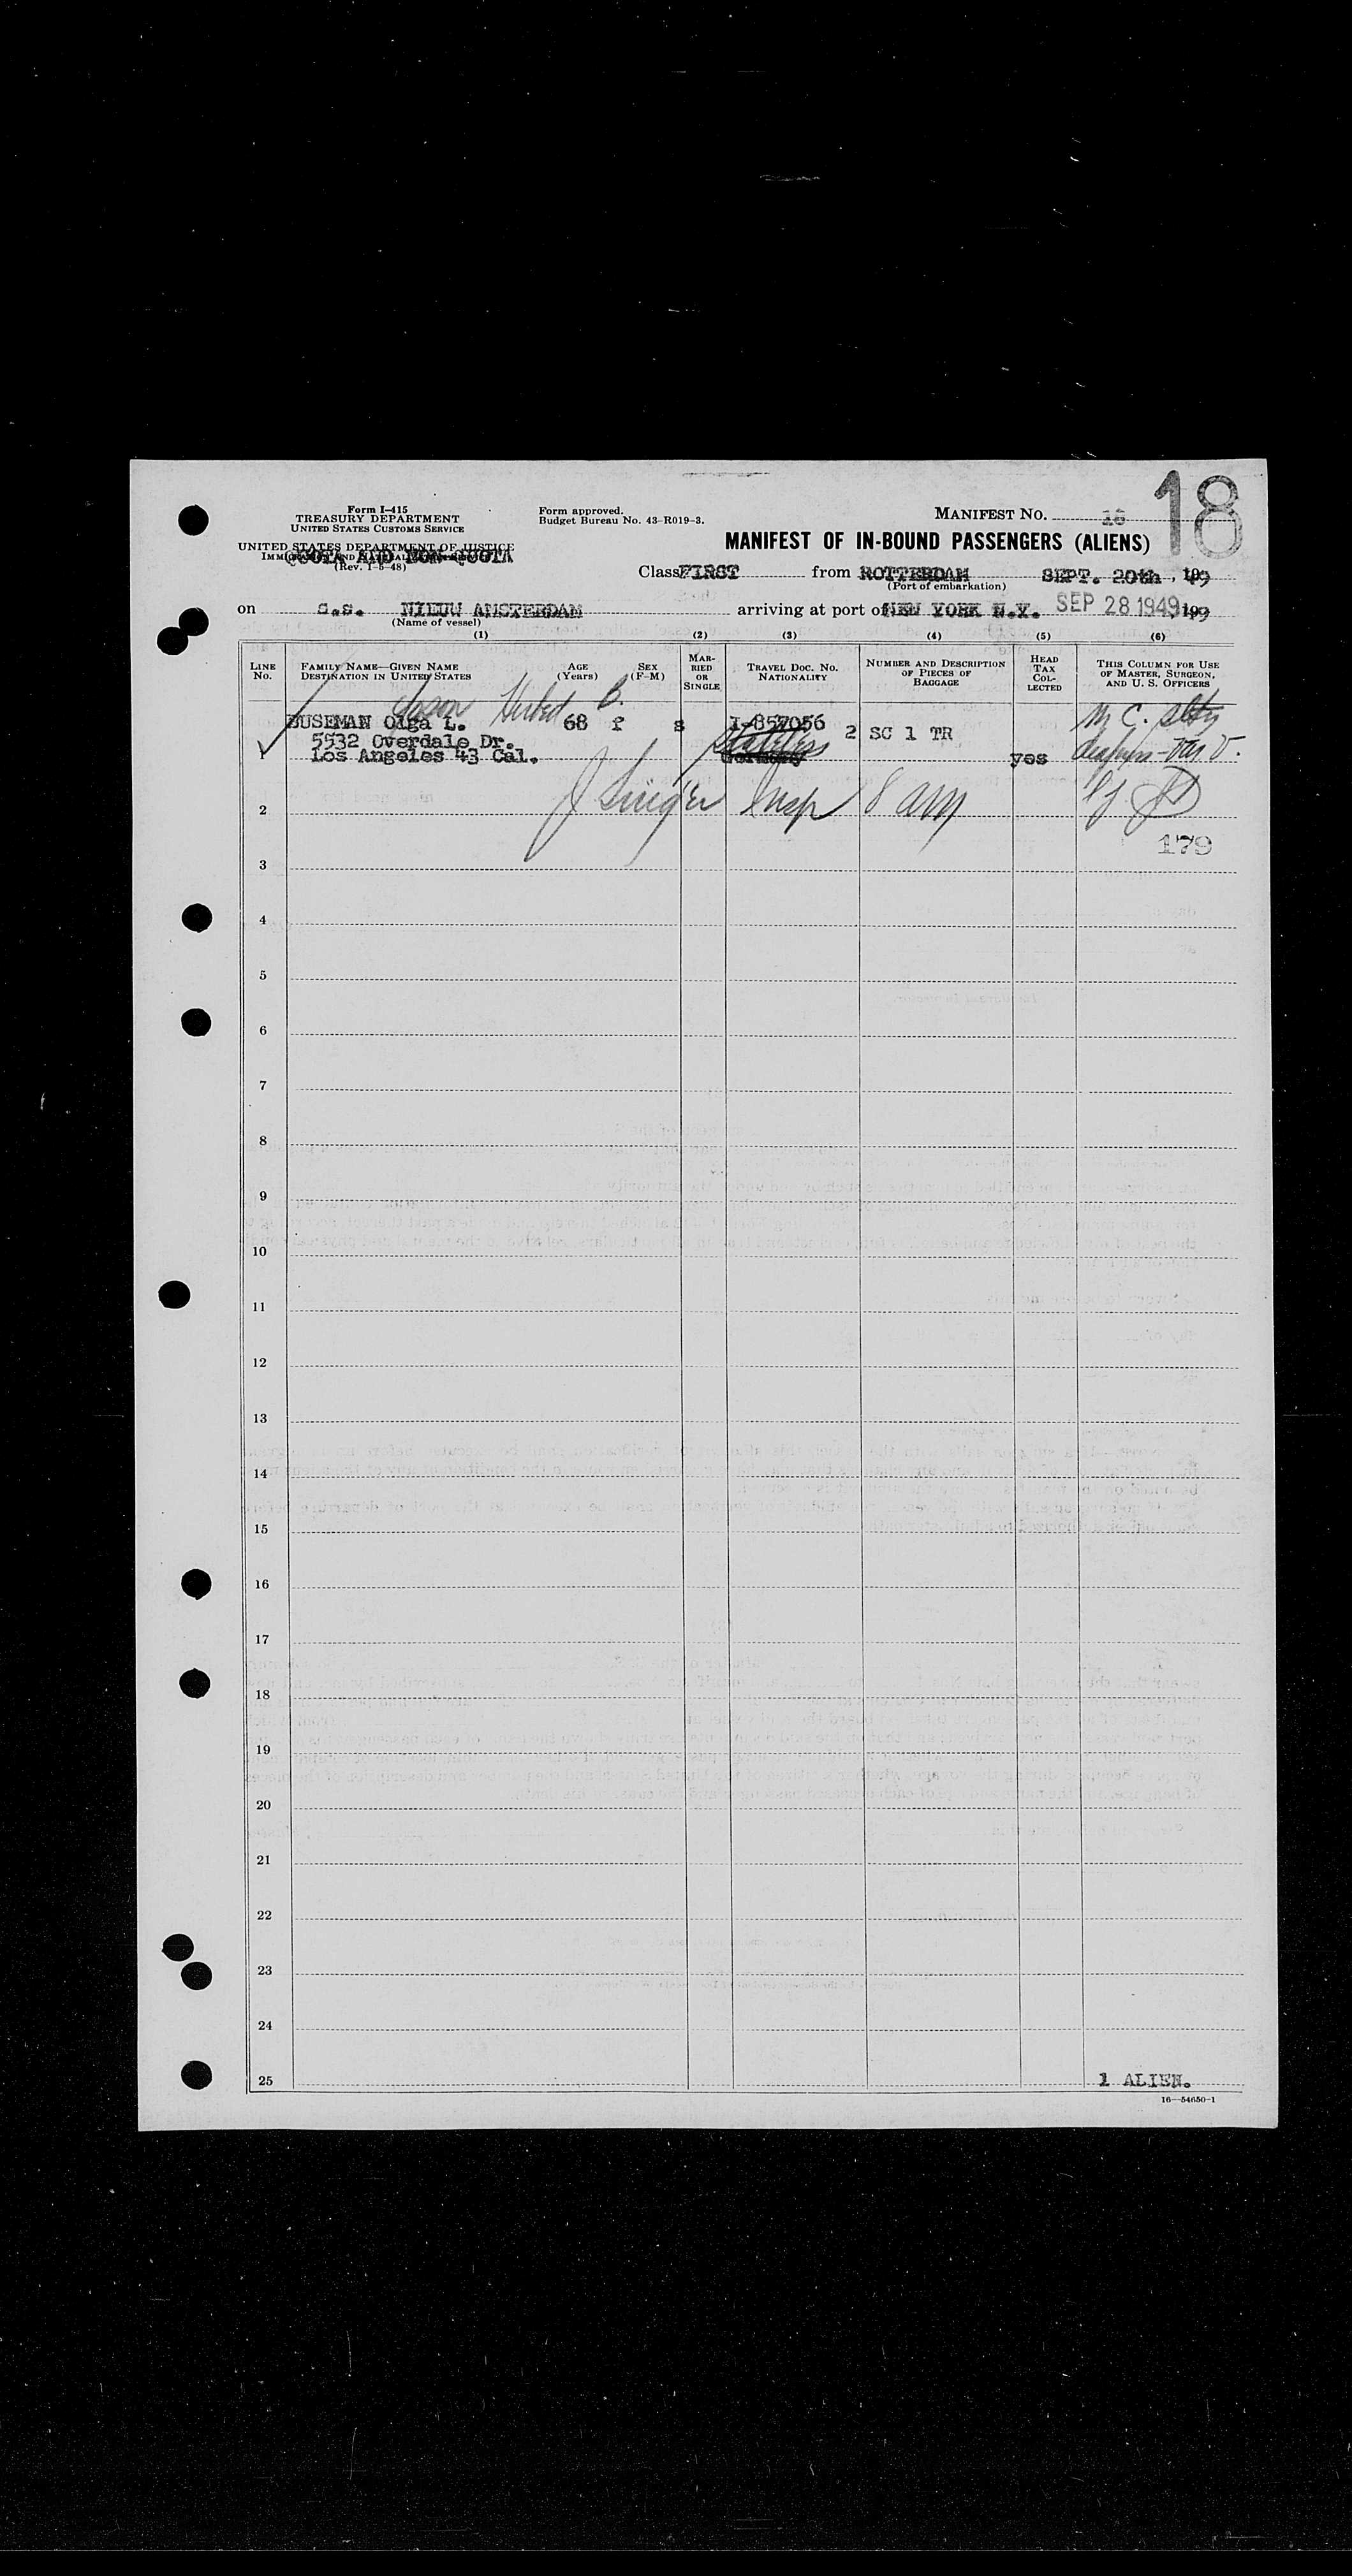 18
Form I-415
TREASURY DEPARTMENT
UNITED STATES CUSTOMS SERVICE
UNITED STATES DEPARTMENT OF JUSTICE
QUOTA AND NON-QUOTA
(Rev. 1-5-48)
Form approved.
Budget Bureau No. 43-R019-3.
MANIFEST NO. 18
MANIFEST OF IN-BOUND PASSENGERS (ALIENS)
Class FIRST from ROTTERDAM SEPT. 20th, 1949
(Port of embarkation)
on S.S. NIEUW AMSTERDAM arriving at port of NEW YORK N.Y. SEP 28 1949, 1949
(Name of vessel)
(1) (2) (3) (4) (5) (6)
LINE No. FAMILY NAME—GIVEN NAME DESTINATION IN UNITED STATES AGE (Years) SEX (F-M) MARRIED OR SINGLE TRAVEL DOC. NO. NATIONALITY NUMBER AND DESCRIPTION OF PIECES OF BAGGAGE HEAD TAX COLLECTED THIS COLUMN FOR USE OF MASTER, SURGEON, AND U. S. OFFICERS
B.
BUSEMAN Olga L. 68 f s I-857056 2 SC 1 TR
5532 Overdale Dr. Stateless
1 Los Angeles 43 Cal. Germany yes
2 J Singer Insp 8 AM
179
3
4
5
6
7
8
9
10
11
12
13
14
15
16
17
18
19
20
21
22
23
24
25 1 ALIEN.
16—54650-1